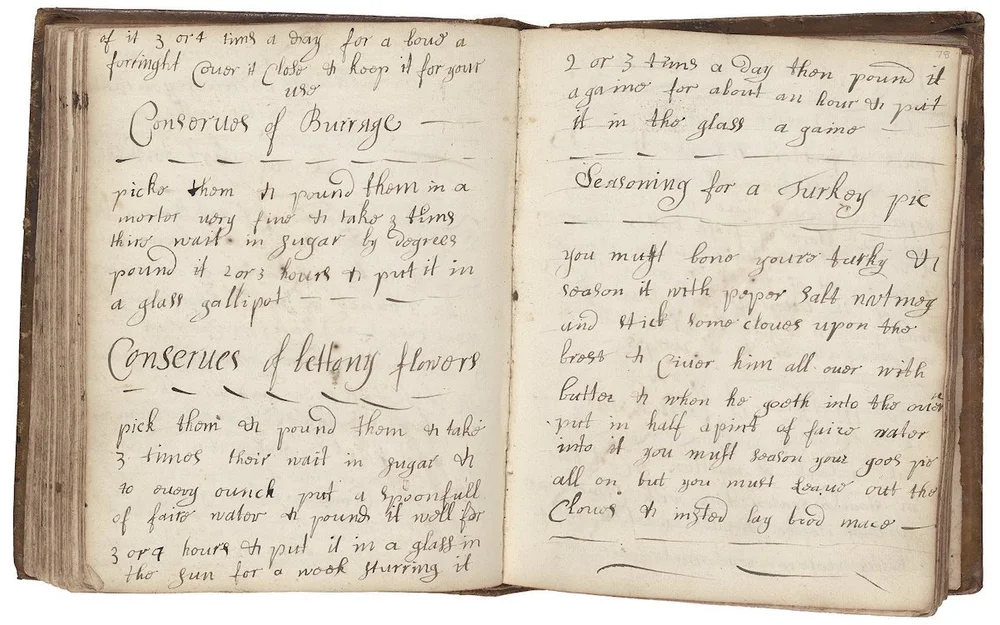 of it 3 or 4 tims a day for a boue a
fortinght Couer it Close & keep it for your
use
Conserues of Burrage
picke them & pound them in a
mortor uery fine & take 3 tims
thire wait in sugar by degrees
pound it 2 or 3 hours & put it in
a glass gallipot
Conserues of bettony flowers
pick them & pound them & take
3 times their wait in sugar &
to euery ounck put a spoonfull
of faire water & pound it well for
3 or 4 hours & put it in a glass in
the sun for a week sturring it
78
2 or 3 tims a day then pound it
againe for about an hour & put
it in the glass a gaine
Seasoning for a Turkey pie
you must bone youre turky &
season it with peper salt nutmeg
and stick some cloues upon the
brest & Ciuer him all ouer with
butter & when he goeth into the ouen
put in half a pint of faire water
into it you must season your goos pie
all on but you must leaue out the
Cloues & insted lay brod mace